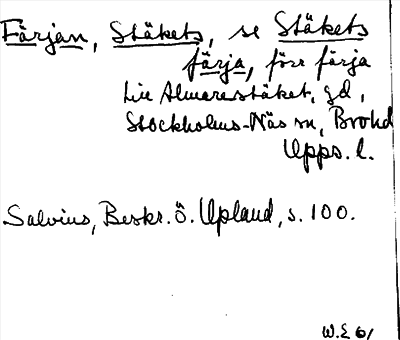 Färjan, Stäkets, se Stäkets
färja, förr färja
till Almarestäket, gd,
Stockholms-Näs sn, Brohd
Upps. l.
Salvius, Beskr. ö. Upland, s. 100.
W.E 61